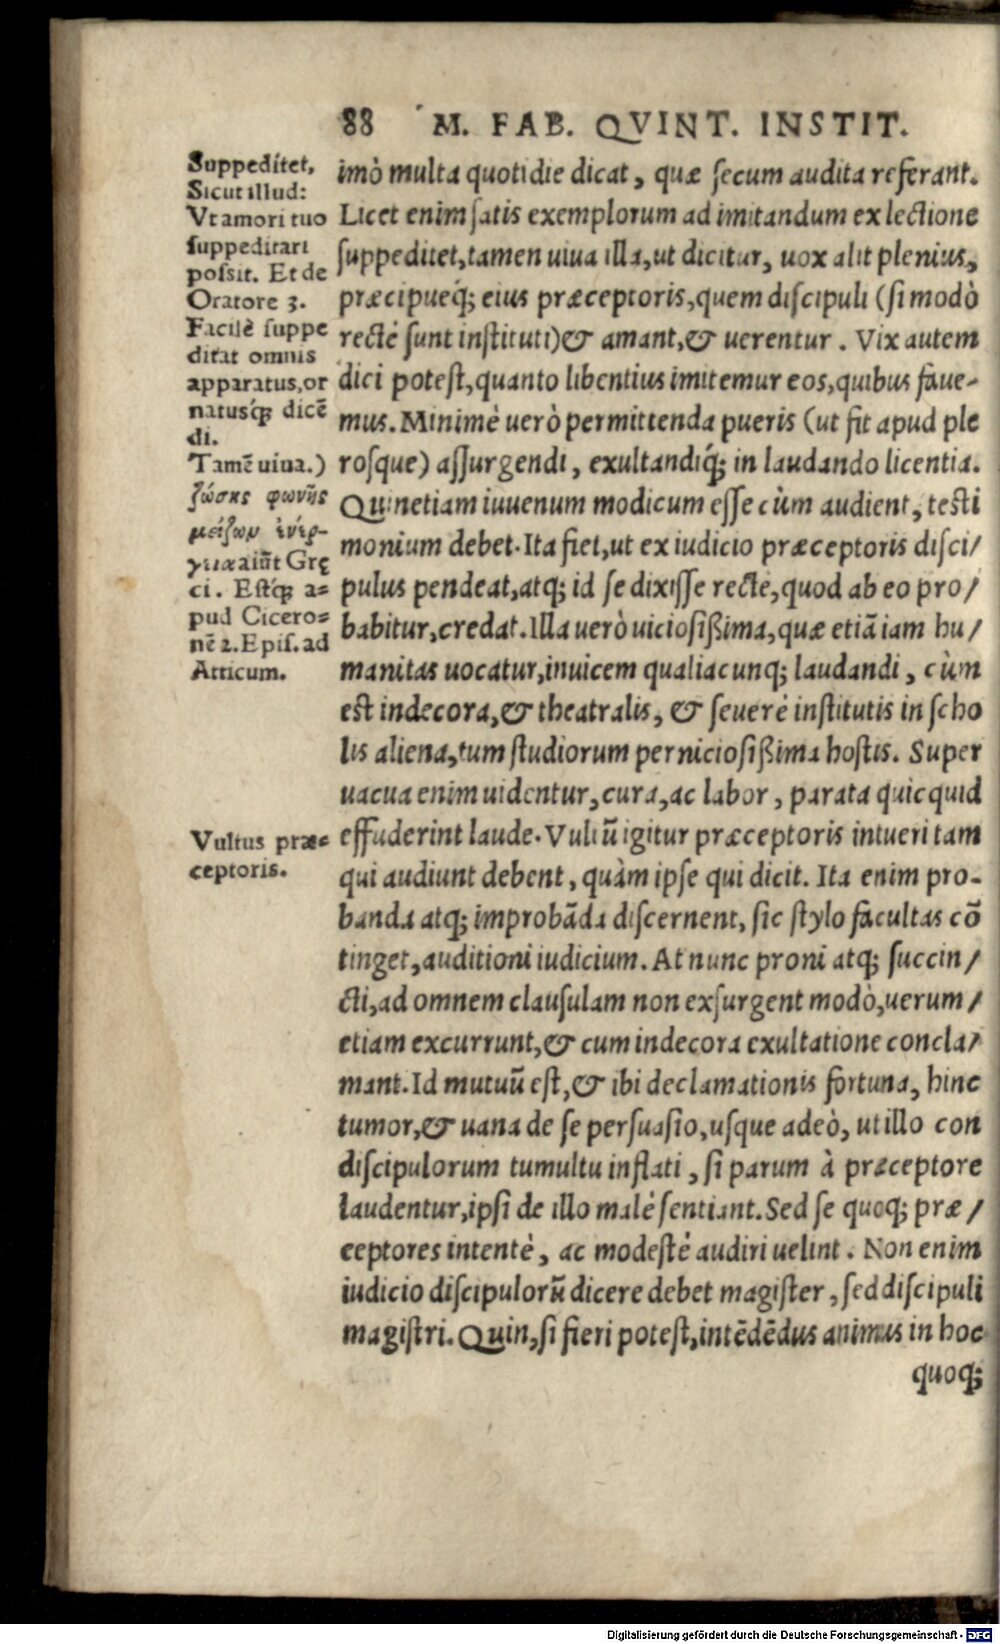 88 M. FAB. QVINT. INSTIT.
Suppeditet,
Sicut illud:
Vt amori tuo
suppeditari
possit. Et de
Oratore 3.
Facilè suppe
ditat omnis
apparatus, or
natusq́; dicē
di.
Tamē uiua.)
ζώσης φωνῆς
μείζων ἐνέρ-
γεια aiūt Grę
ci. Estq́; a=
pud Cicero=
nē 2. Epis. ad
Atticum.
Vultus præ=
ceptoris.
imò multa quotidie dicat, quæ secum audita referant.
Licet enim satis exemplorum ad imitandum ex lectione
suppeditet, tamen uiua illa, ut dicitur, uox alit plenius,
præcipueq́; eius præceptoris, quem discipuli (si modò
rectè sunt instituti) & amant, & uerentur. Vix autem
dici potest, quanto libentius imitemur eos, quibus faue-
mus. Minimè uerò permittenda pueris (ut fit apud ple
rosque) assurgendi, exultandiq́; in laudando licentia.
Quinetiam iuuenum modicum esse cùm audient, testi
monium debet. Ita fiet, ut ex iudicio præceptoris disci/
pulus pendeat, atq; id se dixisse recte, quod ab eo pro/
babitur, credat. Illa uerò uiciosißima, quæ etiā iam hu/
manitas uocatur, inuicem qualiacunq; laudandi, cùm
est indecora, & theatralis, & seuerè institutis in scho
lis aliena, tum studiorum perniciosißima hostis. Super
uacua enim uidentur, cura, ac labor, parata quicquid
effuderint laude. Vultū igitur præceptoris intueri tam
qui audiunt debent, quàm ipse qui dicit. Ita enim pro-
banda atq; improbāda discernent, sic stylo facultas cō
tinget, auditioni iudicium. At nunc proni atq; succin/
cti, ad omnem clausulam non exsurgent modò, uerum/
etiam excurrunt, & cum indecora exultatione concla/
mant. Id mutuū est, & ibi declamationis fortuna, hinc
tumor, & uana de se persuasio, usque adeò, ut illo con
discipulorum tumultu inflati, si parum à præceptore
laudentur, ipsi de illo malè sentiant. Sed se quoq; præ/
ceptores intentè, ac modestè audiri uelint. Non enim
iudicio discipulorū dicere debet magister, sed discipuli
magistri. Quin, si fieri potest, intēdēdus animus in hoc
quoq;
Digitalisierung gefördert durch die Deutsche Forschungsgemeinschaft - DFG